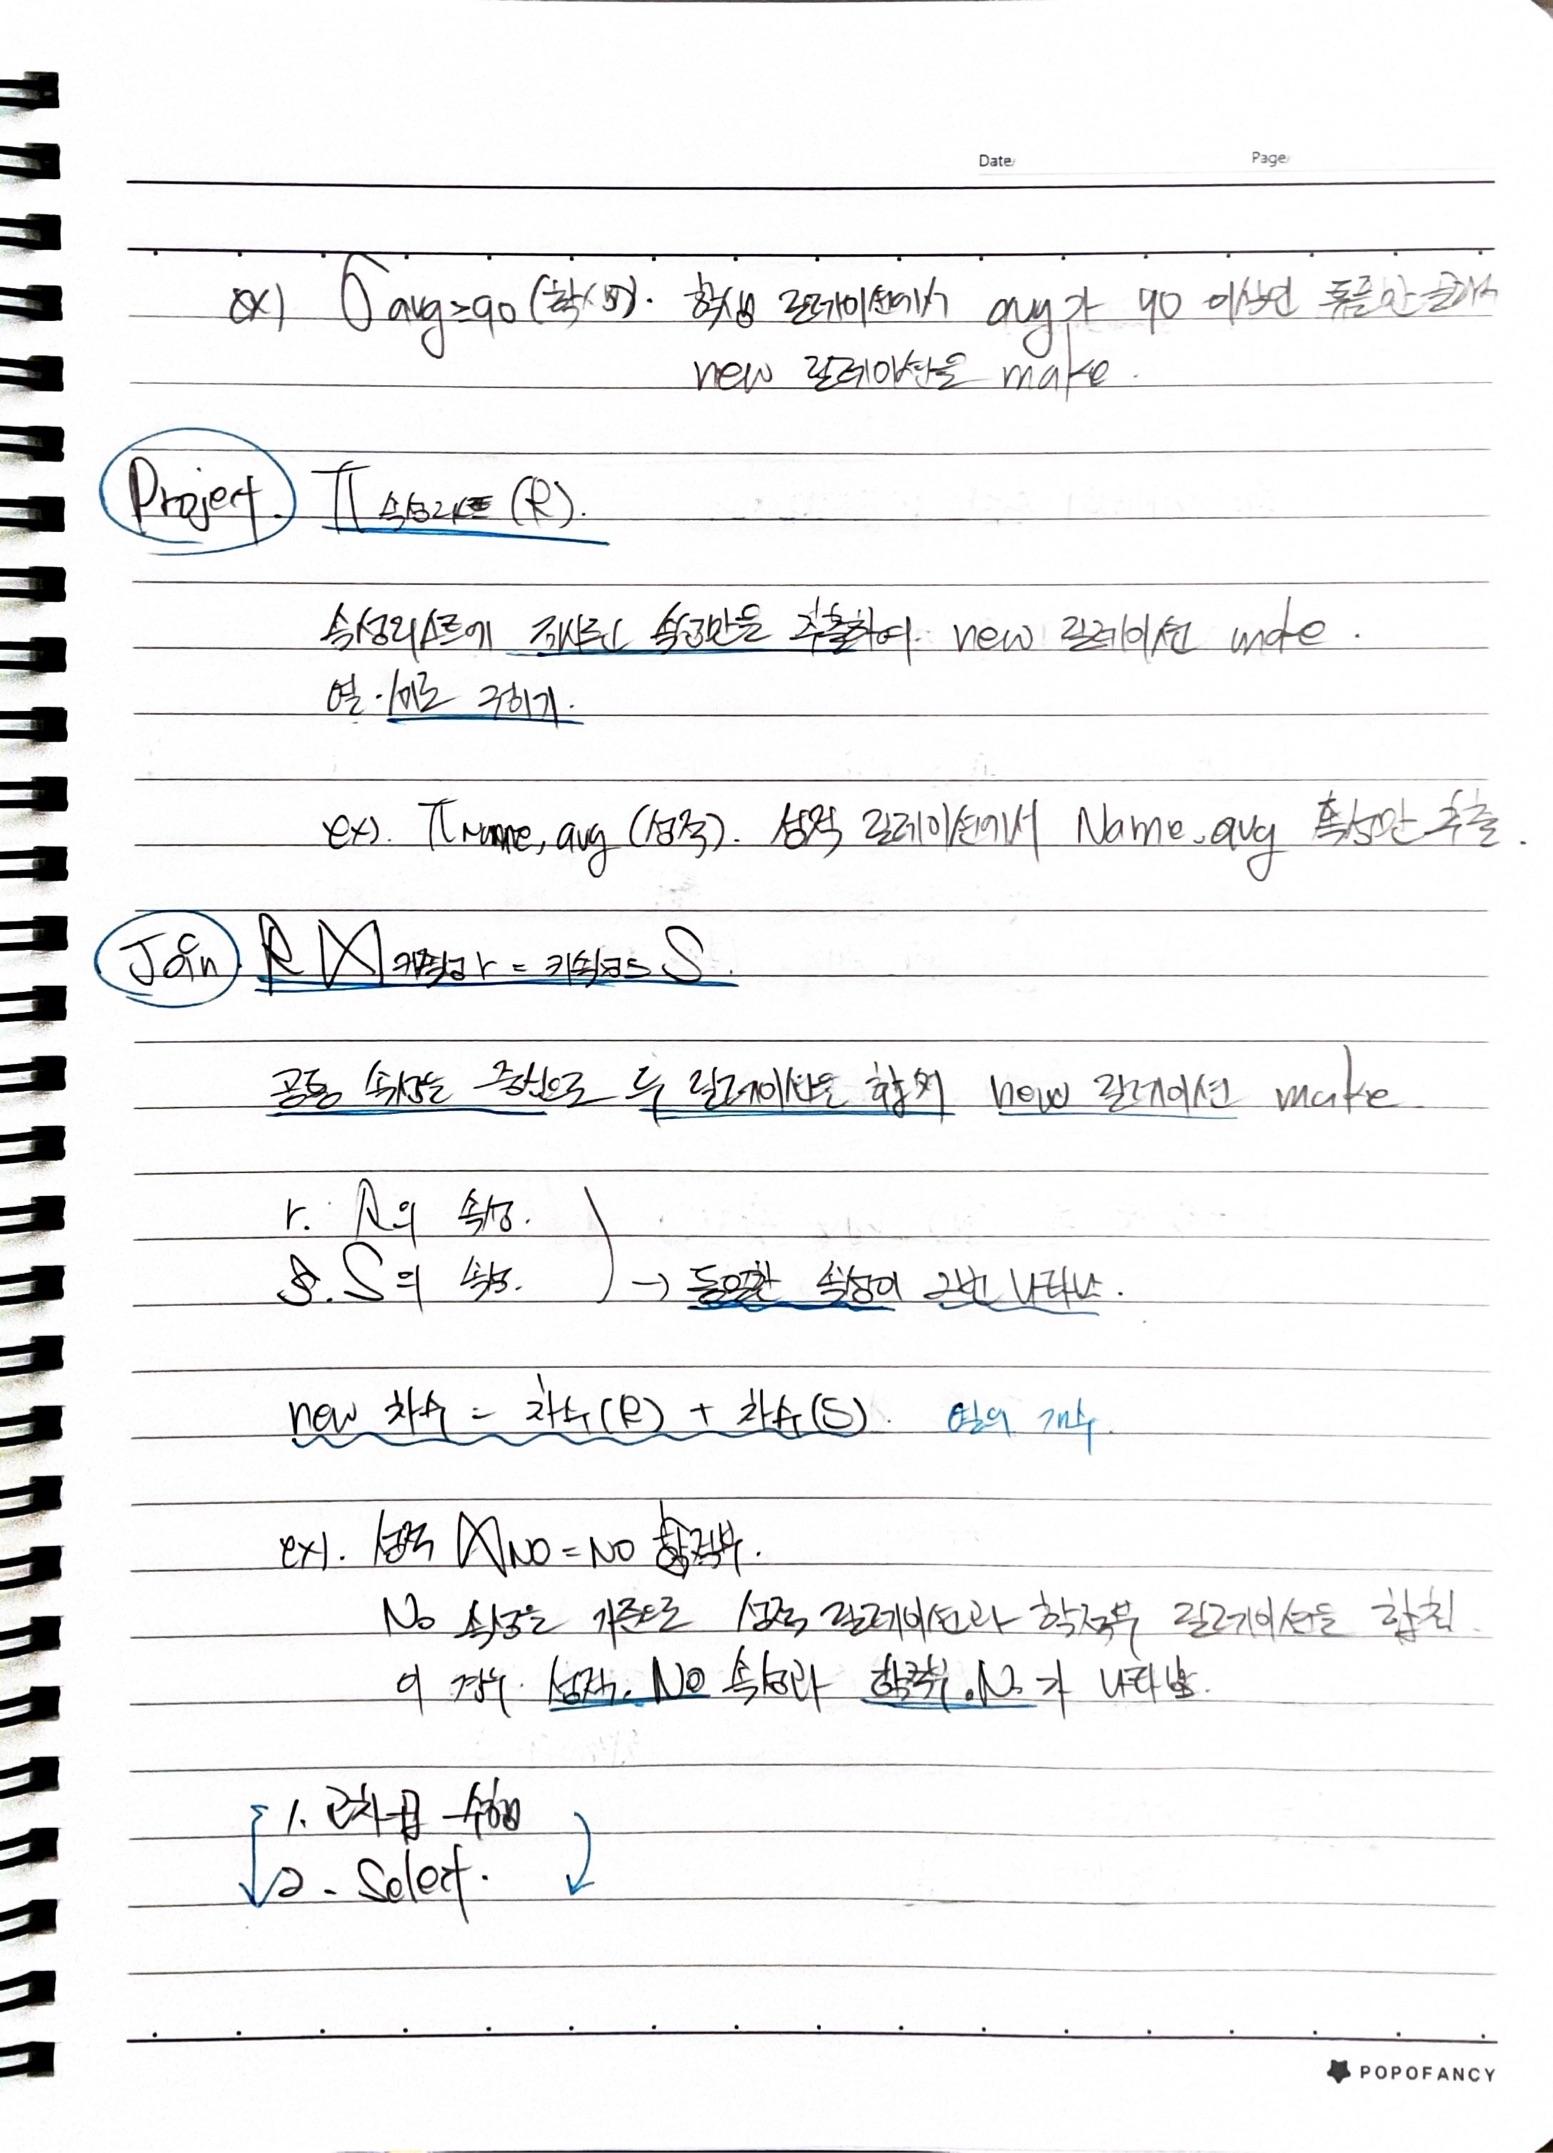 Date
Page
ex) σ avg≥90 (학생). 학생 릴레이션에서 avg가 90 이상인 튜플만 골라서
new 릴레이션을 make.
Project. π 속성리스트 (R).
속성리스트에 제시된 속성만을 추출하여 new 릴레이션 make.
열·세로 구하기.
ex). π Name, avg (성적). 성적 릴레이션에서 Name, avg 속성만 추출.
Join. R ⋈ 키속성r = 키속성s S.
공통 속성을 중심으로 두 릴레이션을 합쳐 new 릴레이션 make
r. R의 속성.
s. S의 속성. → 동일한 속성이 2번 나타남.
new 차수 = 차수(R) + 차수(S). 열의 개수.
ex). 성적 ⋈ NO = NO 학적부.
No 속성을 기준으로 성적 릴레이션과 학적부 릴레이션을 합침
이 경우. 성적.No 속성과 학적부.No가 나타남.
1. 교차곱 수행
2. Select.
POPOFANCY